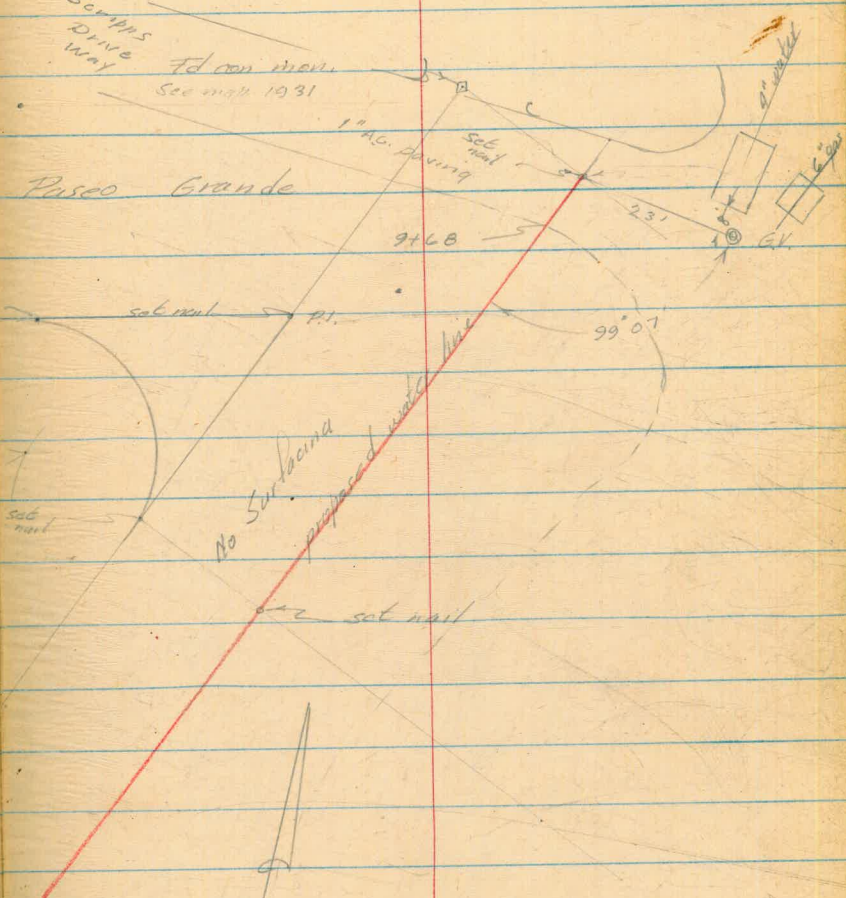 Scripps
Drive
Way
Fd con mon.
See map 1931
1" A.C. paving
set
nail
C
6" gas
Paseo Grande
23'
G.V.
9+68
set nail
P.I.
99°07'
No Surfacing
proposed water line
set
nail
set nail